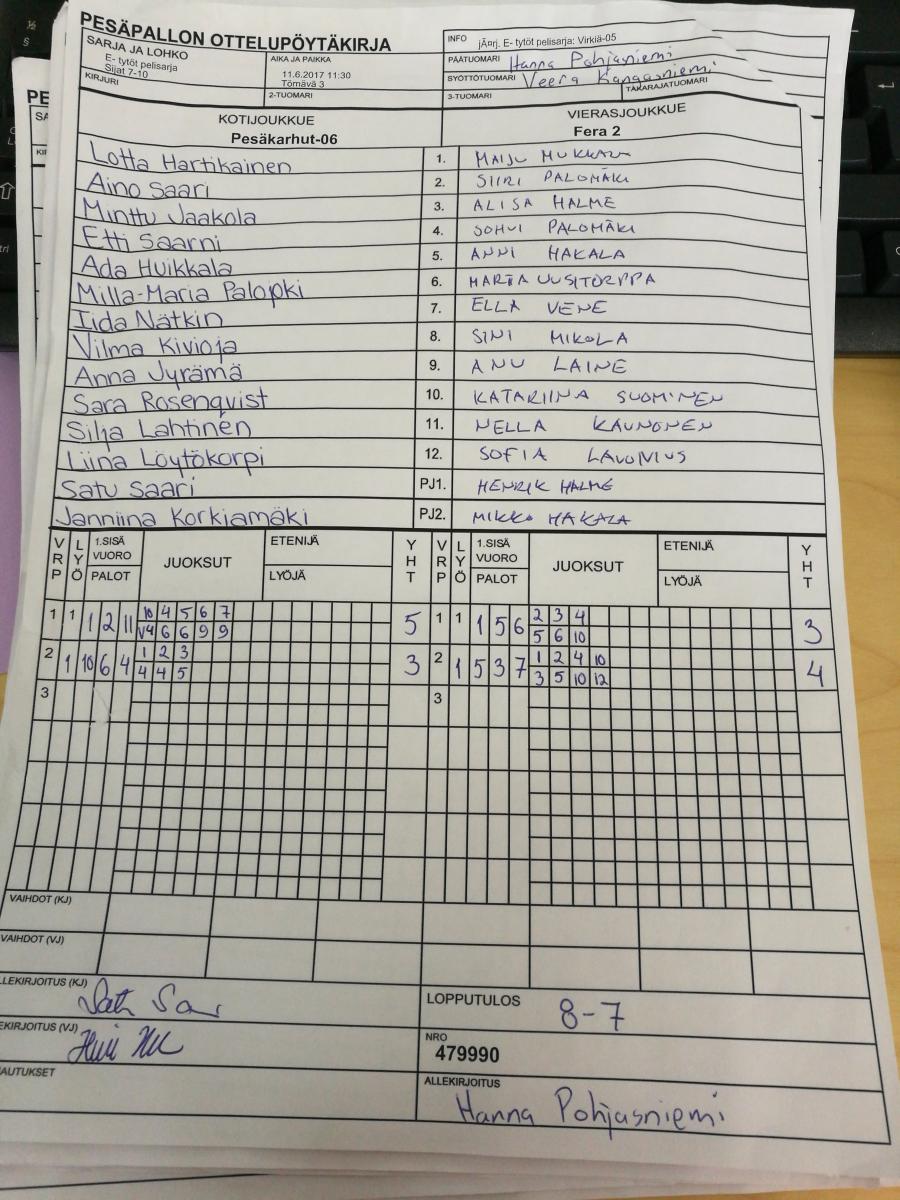 PESÄPALLON OTTELUPÖYTÄKIRJA
SARJA JA LOHKO
E- tytöt pelisarja
Sijat 7-10
AIKA JA PAIKKA
11.6.2017 11:30
Törnävä 3
INFO järj. E- tytöt pelisarja: Virkiä-05
PÄÄTUOMARI Hanna Pohjasniemi
SYÖTTÖTUOMARI Veera Kangasniemi
KIRJURI
2-TUOMARI
3-TUOMARI
TAKARAJATUOMARI
KOTIJOUKKUE
Pesäkarhut-06
VIERASJOUKKUE
Fera 2
Lotta Hartikainen 1. MAIJU
Aino Saari 2. SIIRI PALOMÄKI
Minttu Jaakola 3. ALISA HALME
Etti Saarni 4. SOHVI PALOMÄKI
Ada Huikkala 5. ANNI HAKALA
Milla-Maria Palopki 6. MARIA UUSITORPPA
Iida Nätkin 7. ELLA VENE
Vilma Kivioja 8. SINI MIKOLA
Anna Jyrämä 9. ANU LAINE
Sara Rosenqvist 10. KATARIINA SUOMINEN
Silja Lahtinen 11. NELLA KAUNONEN
Liina Löytökorpi 12. SOFIA LAVONIUS
Satu Saari PJ1. HENRIK HALME
Janniina Korkiamäki PJ2. MIKKO HAKALA
VRP LYÖ 1.SISÄ VUORO PALOT JUOKSUT ETENIJÄ LYÖJÄ YHT VRP LYÖ 1.SISÄ VUORO PALOT JUOKSUT ETENIJÄ LYÖJÄ YHT
1 1 1 2 11 10 4 5 6 7 5 1 1 1 5 6 2 3 4 3
V4 6 6 9 9 5 6 10
2 1 10 6 4 1 2 3 3 2 1 5 3 7 1 2 4 10 4
4 4 5 3 5 10 12
3 3
VAIHDOT (KJ)
VAIHDOT (VJ)
LLEKIRJOITUS (KJ)
LOPPUTULOS 8-7
EKIRJOITUS (VJ)
NRO
479990
AUTUKSET
ALLEKIRJOITUS
Hanna Pohjasniemi